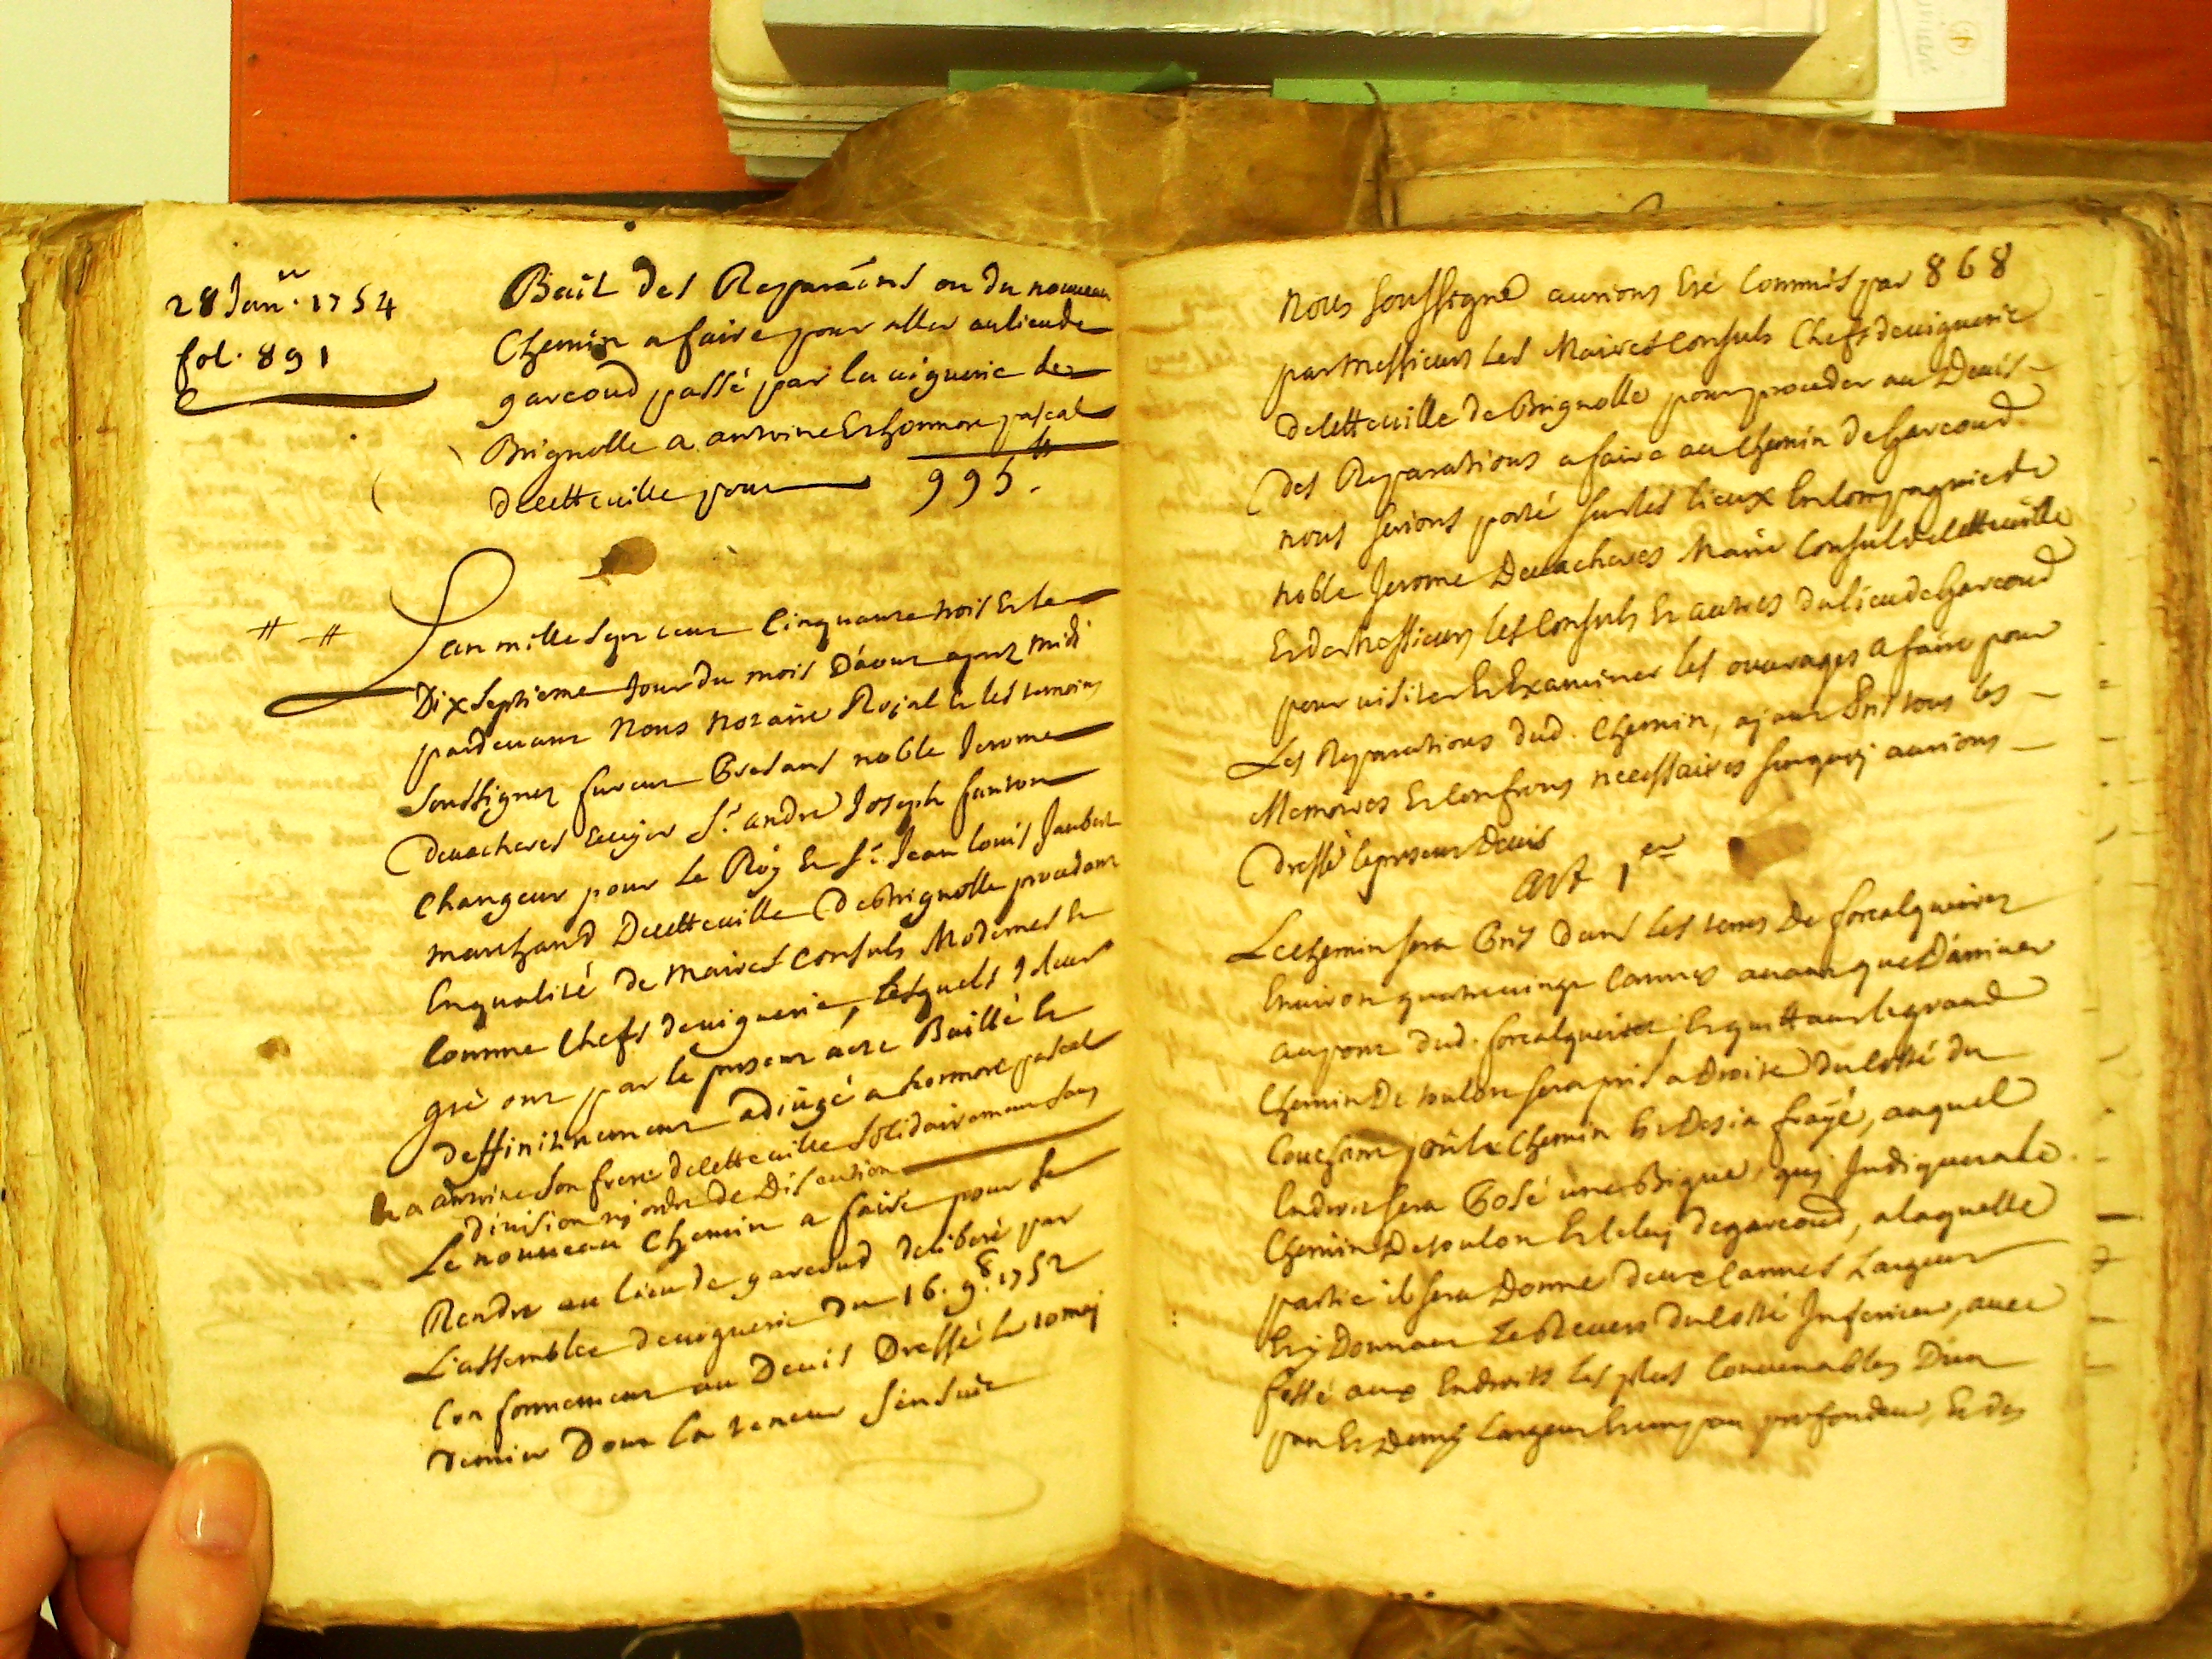 28 Janr. 1754
fol. 891
Bail des Reparaons ou du nouveau
Chemin a faire pour aller au lieu de
gareoud passé par la viguerie de
Brignolle a antoine Et honnore pascal
de cette ville pour 995 ₶.
L'an mille sept cent Cinquante trois Et le
Dix septieme Jour du mois D'aout apres midi
pardevant Nous notaire Royal Et les temoins
soussignez furent Presans noble Jerome
Devacheres Ecuyer Sr. andré Joseph fanton
Changeur pour Le Roy Et Sr. Jean Louis Jaubert
marchand De cette ville De Brignolle procedant
En qualité de maires Consuls Modernes Et
Comme Chefs de viguerie, Lesquels de leur
gré ont par le present acte Baillé Et
deffinitivement adjugé a honnoré pascal
Et a antoine son frere de cette ville solidairement sans
division ny ordre de Discution
Le nouveau Chemin a faire pour se
Rendre au lieu de gareoud deliberé par
L'assemblée de viguerie du 16. 9.8 1752
Conformement au Devis Dressé le 10 mai
dernier Dont la teneur s'ensuit
868
Nous soussigné aurions Eté Commis par
par messieurs Les Maires Consuls Chefs de viguerie
de cette ville de Brignolle pour proceder au Devis
des Reparations a faire au Chemin de Gareoud
nous serions porté sur les lieux En Compagnie de
noble Jerome Devacheres Maire Consul de cette ville
Et de messieurs les Consuls Et autres du lieu de Gareoud
pour visiter Et Examiner les ouvrages a faire pour
Les Reparations dud. Chemin, ayant Pris tous les
Memoires Et Confrons necessaires surquoy aurions
dressé le present Devis
art 1er
Le Chemin sera Pris dans les terres De forcalqueiret
Environ quatre vingt Cannes avant que D'arriver
au pont dud. forcalqueiret, Et quittant le grand
Chemin De toulon sera pris a Droite du Cotté du
Couchant par le Chemin Et Desja frayé, auquel
Endroit sera Posé une Bigue, quy Indiquera le
Chemin De toulon Et Celuy de gareoud, a laquelle
partie il sera Donné deux Cannes Largeur
Et y Donnant Le devers du Cotté Inferieur, avec
fossé aux Endroits les plus Convenables D'un
pan Et Demy Largeur Et un pan profondeur, Et des